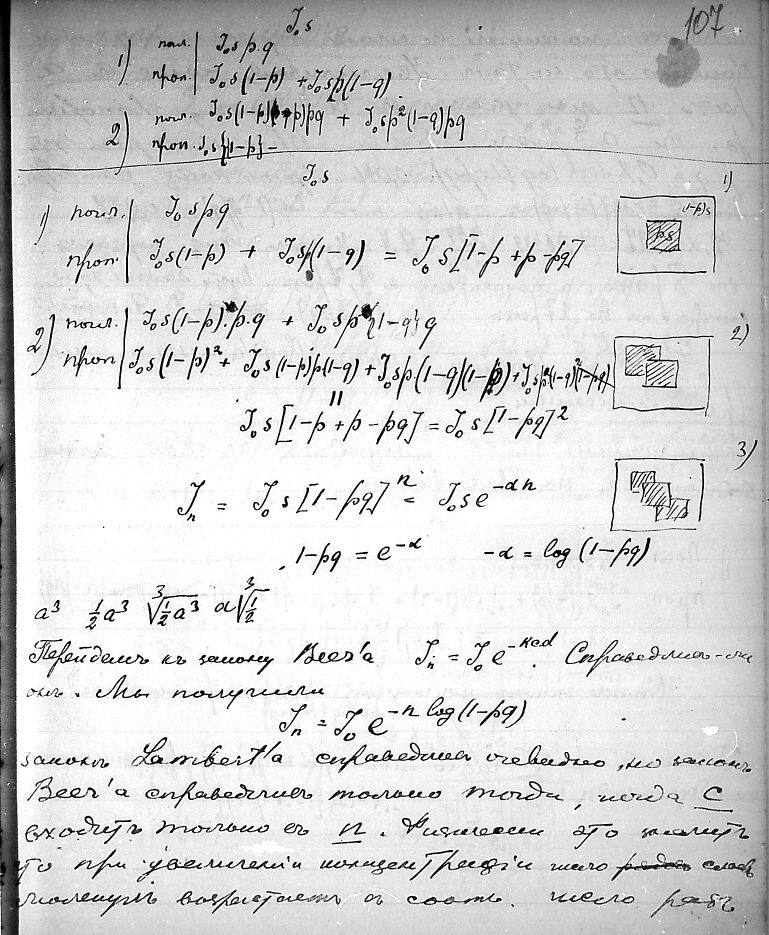 107
J₀s
1) погл. | J₀spq
проп. | J₀s(1-p) + J₀sp(1-q)
2) погл. J₀s(1-p)pq + J₀sp²(1-q)pq
проп. J₀s{1-p}-
J₀s
1) погл. | J₀spq
проп. | J₀s(1-p) + J₀sp(1-q) = J₀s[1-p+p-pq]
1)
(1-p)s
ps
2) погл. | J₀s(1-p).p.q + J₀sp{1-q}q
проп | J₀s(1-p)² + J₀s(1-p)p(1-q) + J₀sp(1-q)(1-p) + J₀sp²(1-q)²(1-pq)
2)
"
J₀s[1-p+p-pq] = J₀s[1-pq]²
3)
Jₙ = J₀s[1-pq]ⁿ = J₀se^{-αn}
1-pq = e^{-α} -α = log(1-pq)
a³ ½a³ ∛(½a³) a∛½
Перейдемъ къ закону Beer'a Jₙ = J₀e^{-κcd}. Справедливъ-ли
онъ. Мы получили
Jₙ = J₀e^{-n log(1-pq)}
законъ Lambert'a справедливъ очевидно, но законъ
Beer'a справедливъ только тогда, когда C
входитъ только въ n. Физически это значитъ
что при увеличеніи концентраціи число рядовъ слоевъ
молекулъ возрастаетъ въ соотв. число разъ